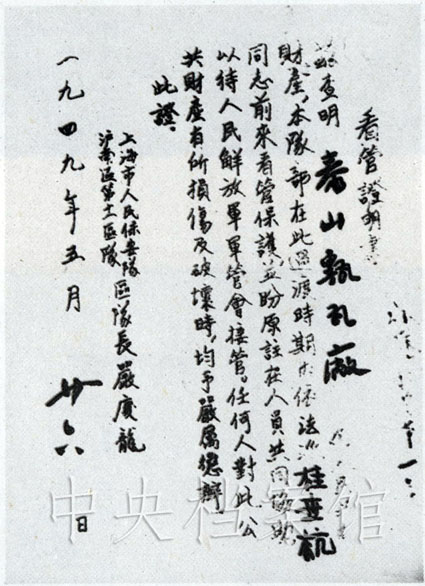 看管證明書
茲查明 泰山甎瓦廠
財產，本隊部在此過渡時期內依法派桂
同志前來看管保護，並盼原該在人員共同協助
以待人民解放軍軍管會接管。任何人對此公
共財產有所損傷及破壞時，均予嚴厲懲辦
此證。
上海市人民保安隊
滬南區第十一區隊
區隊長嚴慶龍
一九四九年五月廿六日
中央档案馆